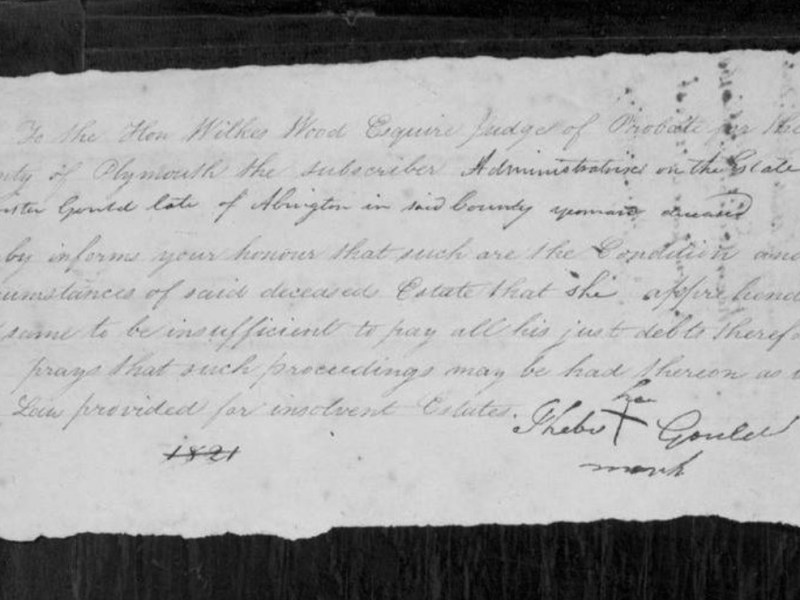 To the Hon Wilkes Wood Esquire Judge of Probate for the
nty of Plymouth the subscriber Administratrix on the Estate
Gould late of Abington in said County yeoman deceased
by informs your honour that such are the Condition and
cumstances of said deceased Estate that she apprehend
same to be insufficient to pay all his just debts therefo
prays that such proceedings may be had thereon as
Law provided for insolvent Estates.
her
Phebe X Gould
mark
1821